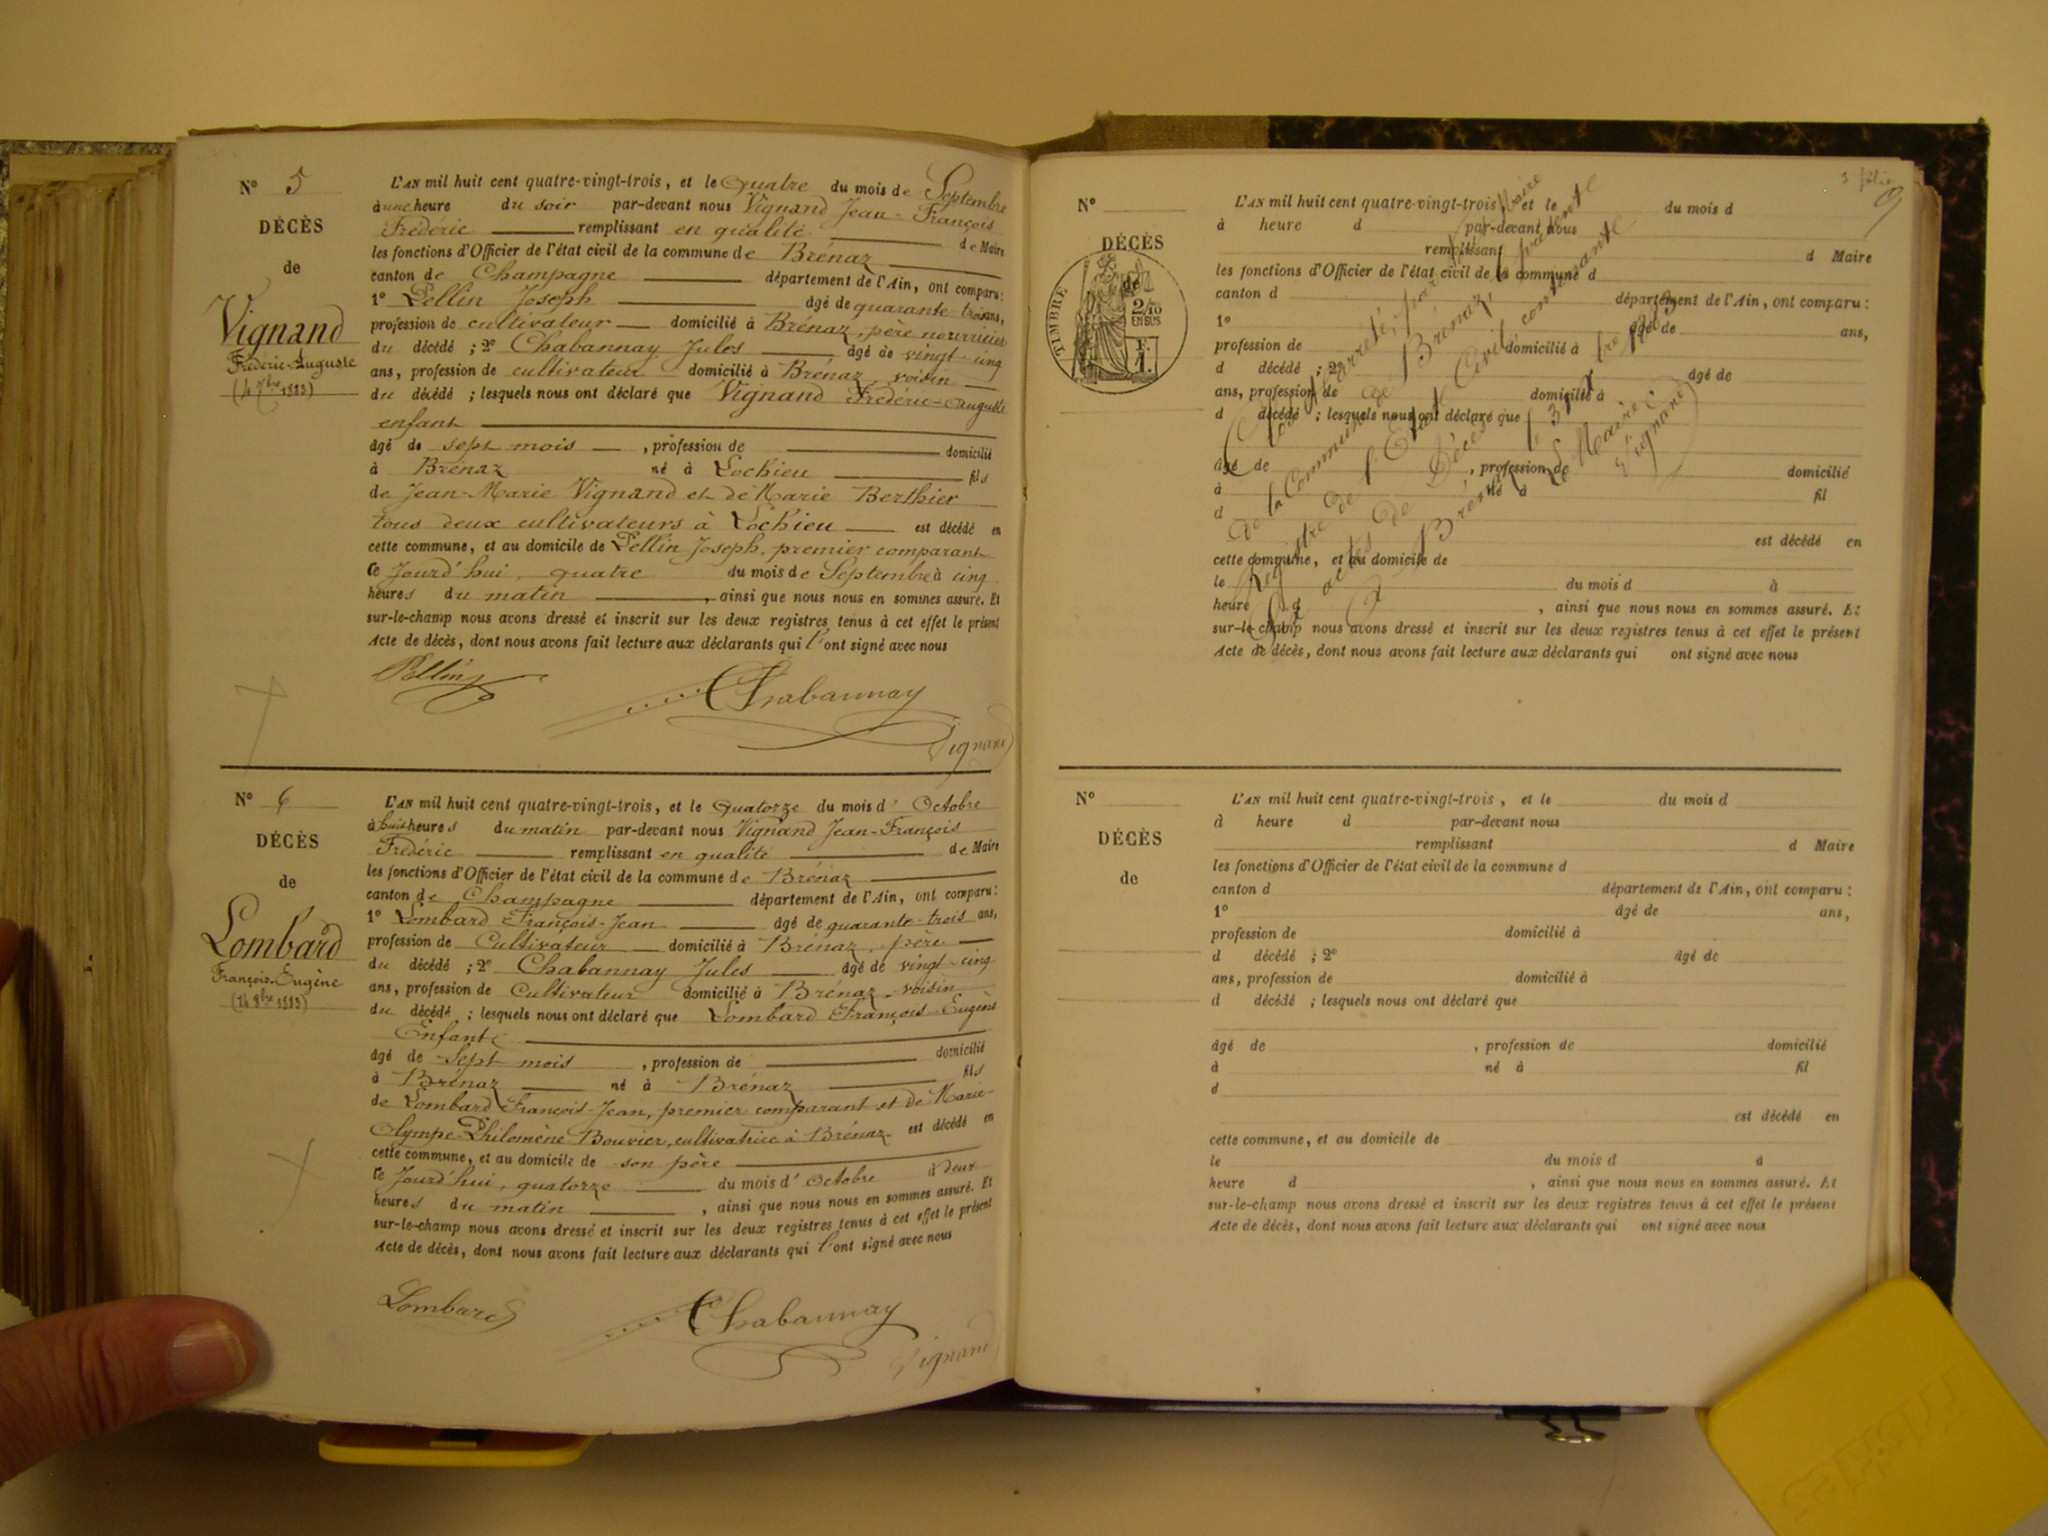 N° 5
DÉCÈS
de
Vignand
Frédéric-Auguste
(4 7bre 1883)
L'AN mil huit cent quatre-vingt-trois, et le Quatre du mois de Septembre
à une heure du soir par-devant nous Vignand Jean-François
Frédéric remplissant en qualité de Maire
les fonctions d'Officier de l'état civil de la commune de Brénaz
canton de Champagne département de l'Ain, ont comparu:
1° Pellin Joseph âgé de quarante-trois ans,
profession de cultivateur domicilié à Brénaz, père nourricier
du décédé ; 2° Chabannay Jules âgé de vingt-cinq
ans, profession de cultivateur domicilié à Brénaz, voisin
du décédé ; lesquels nous ont déclaré que Vignand Frédéric-Auguste
enfant
âgé de sept mois , profession de domicilié
à Brénaz né à Lochieu fils
de Jean-Marie Vignand et de Marie Berthier
tous deux cultivateurs à Lochieu est décédé en
cette commune, et au domicile de Pellin Joseph, premier comparant
ce Jourd'hui, quatre du mois de Septembre à cinq
heures du matin , ainsi que nous nous en sommes assuré. Et
sur-le-champ nous avons dressé et inscrit sur les deux registres tenus à cet effet le présent
Acte de décès, dont nous avons fait lecture aux déclarants qui l'ont signé avec nous
Pellin
Chabannay
Vignand
N° 6
DÉCÈS
de
Lombard
François-Eugène
(14 8bre 1883)
L'AN mil huit cent quatre-vingt-trois, et le Quatorze du mois d' Octobre
à huit heures du matin par-devant nous Vignand Jean-François
Frédéric remplissant en qualité de Maire
les fonctions d'Officier de l'état civil de la commune de Brénaz
canton de Champagne département de l'Ain, ont comparu:
1° Lombard François-Jean âgé de quarante-trois ans,
profession de Cultivateur domicilié à Brénaz, père
du décédé ; 2° Chabannay Jules âgé de vingt-cinq
ans, profession de Cultivateur domicilié à Brénaz, voisin
du décédé ; lesquels nous ont déclaré que Lombard François-Eugène
Enfant
âgé de Sept mois , profession de domicilié
à Brénaz né à Brénaz fils
de Lombard François-Jean, premier comparant et de Marie-
Olympe-Philomène Bouvier, cultivatrice à Brénaz est décédé en
cette commune, et au domicile de son père
ce Jourd'hui, quatorze du mois d' Octobre à deux
heures du matin , ainsi que nous nous en sommes assuré. Et
sur-le-champ nous avons dressé et inscrit sur les deux registres tenus à cet effet le présent
Acte de décès, dont nous avons fait lecture aux déclarants qui l'ont signé avec nous
Lombard
Chabannay
Vignand
9
N°
DÉCÈS
de
TIMBRE
2/10
EN SUS
F.
1.
L'AN mil huit cent quatre-vingt-trois, et le du mois d
à heure d par-devant nous
remplissant d Maire
les fonctions d'Officier de l'état civil de la commune d
canton d département de l'Ain, ont comparu:
1° âgé de ans,
profession de domicilié à
d décédé ; 2° âgé de
ans, profession de domicilié à
d décédé ; lesquels nous ont déclaré que
âgé de , profession de domicilié
à né à fil
d
est décédé en
cette commune, et au domicile de
le du mois d à
heure d , ainsi que nous nous en sommes assuré. Et
sur-le-champ nous avons dressé et inscrit sur les deux registres tenus à cet effet le présent
Acte de décès, dont nous avons fait lecture aux déclarants qui ont signé avec nous
Clos et arrêté, par Maire
de la Commune de Brénaz, le présent
Registre de l'Etat Civil constatant
les actes de Décès
à Brénaz le 31 Xbre 1883
Le Maire
Vignand
N°
DÉCÈS
de
L'AN mil huit cent quatre-vingt-trois, et le du mois d
à heure d par-devant nous
remplissant d Maire
les fonctions d'Officier de l'état civil de la commune d
canton d département de l'Ain, ont comparu:
1° âgé de ans,
profession de domicilié à
d décédé ; 2° âgé de
ans, profession de domicilié à
d décédé ; lesquels nous ont déclaré que
âgé de , profession de domicilié
à né à fil
d
est décédé en
cette commune, et au domicile de
le du mois d à
heure d , ainsi que nous nous en sommes assuré. Et
sur-le-champ nous avons dressé et inscrit sur les deux registres tenus à cet effet le présent
Acte de décès, dont nous avons fait lecture aux déclarants qui ont signé avec nous